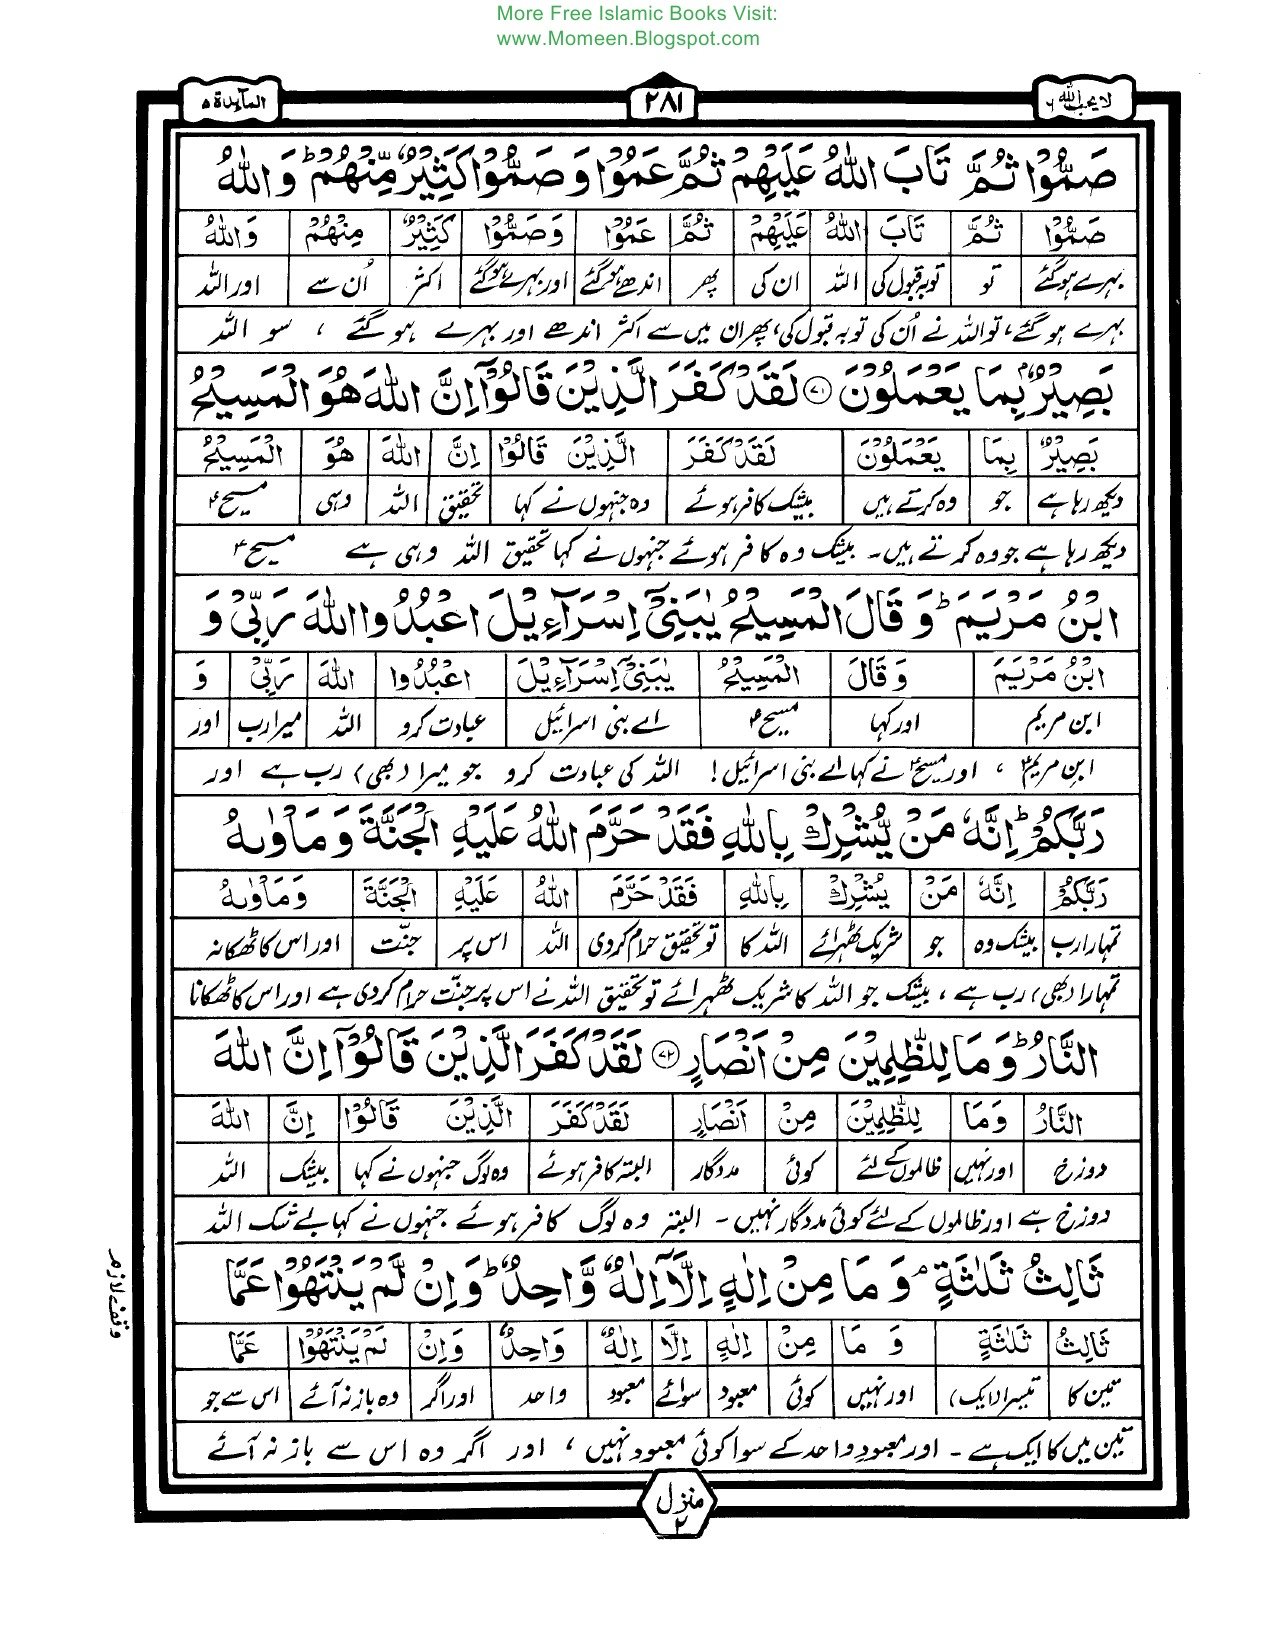 More Free Islamic Books Visit:
www.Momeen.Blogspot.com
لا یحب الله ٦
٢٨١
المآیدة ٥
صَمُّوْا ثُمَّ تَابَ اللّٰهُ عَلَیْهِمْ ثُمَّ عَمُوْا وَ صَمُّوْا كَثِیْرٌ مِّنْهُمْ ؕ وَ اللّٰهُ
صَمُّوْا ثُمَّ تَابَ اللّٰهُ عَلَیْهِمْ ثُمَّ عَمُوْا وَصَمُّوْا كَثِیْرٌ مِنْهُمْ وَاللّٰهُ
بہرے ہو گئے تو توبہ قبول کی اللہ ان کی پھر اندھے ہو گئے اور بہرے ہو گئے اکثر اُن سے اور اللہ
بہرے ہو گئے، تو اللہ نے اُن کی توبہ قبول کی، پھر ان میں سے اکثر اندھے اور بہرے ہو گئے ، سو اللہ
بَصِیْرٌۢ بِمَا یَعْمَلُوْنَ ﴿۷۱﴾ لَقَدْ كَفَرَ الَّذِیْنَ قَالُوْۤا اِنَّ اللّٰهَ هُوَ الْمَسِیْحُ
بَصِیْرٌ بِمَا یَعْمَلُوْنَ لَقَدْ كَفَرَ الَّذِیْنَ قَالُوْا اِنَّ اللّٰهَ هُوَ الْمَسِیْحُ
دیکھ رہا ہے جو وہ کرتے ہیں بیشک کافر ہوئے وہ جنہوں نے کہا تحقیق اللہ وہی مسیحؑ
دیکھ رہا ہے جو وہ کرتے ہیں۔ بیشک وہ کافر ہوئے جنہوں نے کہا تحقیق اللہ وہی ہے مسیحؑ
ابْنُ مَرْیَمَ ؕ وَ قَالَ الْمَسِیْحُ یٰبَنِیْۤ اِسْرَآءِیْلَ اعْبُدُوا اللّٰهَ رَبِّیْ وَ
ابْنُ مَرْیَمَ وَ قَالَ الْمَسِیْحُ یٰبَنِیْۤ اِسْرَآءِیْلَ اعْبُدُوا اللّٰهَ رَبِّیْ وَ
ابن مریم اور کہا مسیحؑ اے بنی اسرائیل عبادت کرو اللہ میرا رب اور
ابنِ مریمؑ ، اور مسیحؑ نے کہا اے بنی اسرائیل! اللہ کی عبادت کرو جو میرا (بھی) رب ہے اور
رَبَّكُمْ ؕ اِنَّهٗ مَنْ یُّشْرِكْ بِاللّٰهِ فَقَدْ حَرَّمَ اللّٰهُ عَلَیْهِ الْجَنَّةَ وَ مَاْوٰىهُ
رَبَّكُمْ اِنَّهٗ مَنْ یُشْرِكْ بِاللّٰهِ فَقَدْ حَرَّمَ اللّٰهُ عَلَیْهِ الْجَنَّةَ وَ مَاْوٰىهُ
تمہارا رب بیشک وہ جو شریک ٹھہرائے اللہ کا تو تحقیق حرام کردی اللہ اس پر جنّت اور اس کا ٹھکانہ
تمہارا (بھی) رب ہے ، بیشک جو اللہ کا شریک ٹھہرائے تو تحقیق اللہ نے اس پر جنّت حرام کر دی ہے اور اس کا ٹھکانا
النَّارُ ؕ وَ مَا لِلظّٰلِمِیْنَ مِنْ اَنْصَارٍ ﴿۷۲﴾ لَقَدْ كَفَرَ الَّذِیْنَ قَالُوْۤا اِنَّ اللّٰهَ
النَّارُ وَمَا لِلظّٰلِمِیْنَ مِنْ اَنْصَارٍ لَقَدْ كَفَرَ الَّذِیْنَ قَالُوْا اِنَّ اللّٰهَ
دوزخ اور نہیں ظالموں کے لئے کوئی مددگار البتہ کافر ہوئے وہ لوگ جنہوں نے کہا بیشک اللہ
دوزخ ہے اور ظالموں کے لئے کوئی مددگار نہیں۔ البتہ وہ لوگ کافر ہوئے جنہوں نے کہا بے شک اللہ
ثَالِثُ ثَلٰثَةٍ ۘ وَ مَا مِنْ اِلٰهٍ اِلَّاۤ اِلٰهٌ وَّاحِدٌ ؕ وَ اِنْ لَّمْ یَنْتَهُوْا عَمَّا
ثَالِثُ ثَلٰثَةٍ وَ مَا مِنْ اِلٰهٍ اِلَّا اِلٰهٌ وَاحِدٌ وَاِنْ لَمْ یَنْتَهُوْا عَمَّا
تین کا تیسرا (ایک) اور نہیں کوئی معبود سوائے معبود واحد اور اگر وہ باز نہ آئے اس سے جو
تین میں کا ایک ہے۔ اور معبودِ واحد کے سوا کوئی معبود نہیں ، اور اگر وہ اس سے باز نہ آئے
وقف لازم
منزل ٢